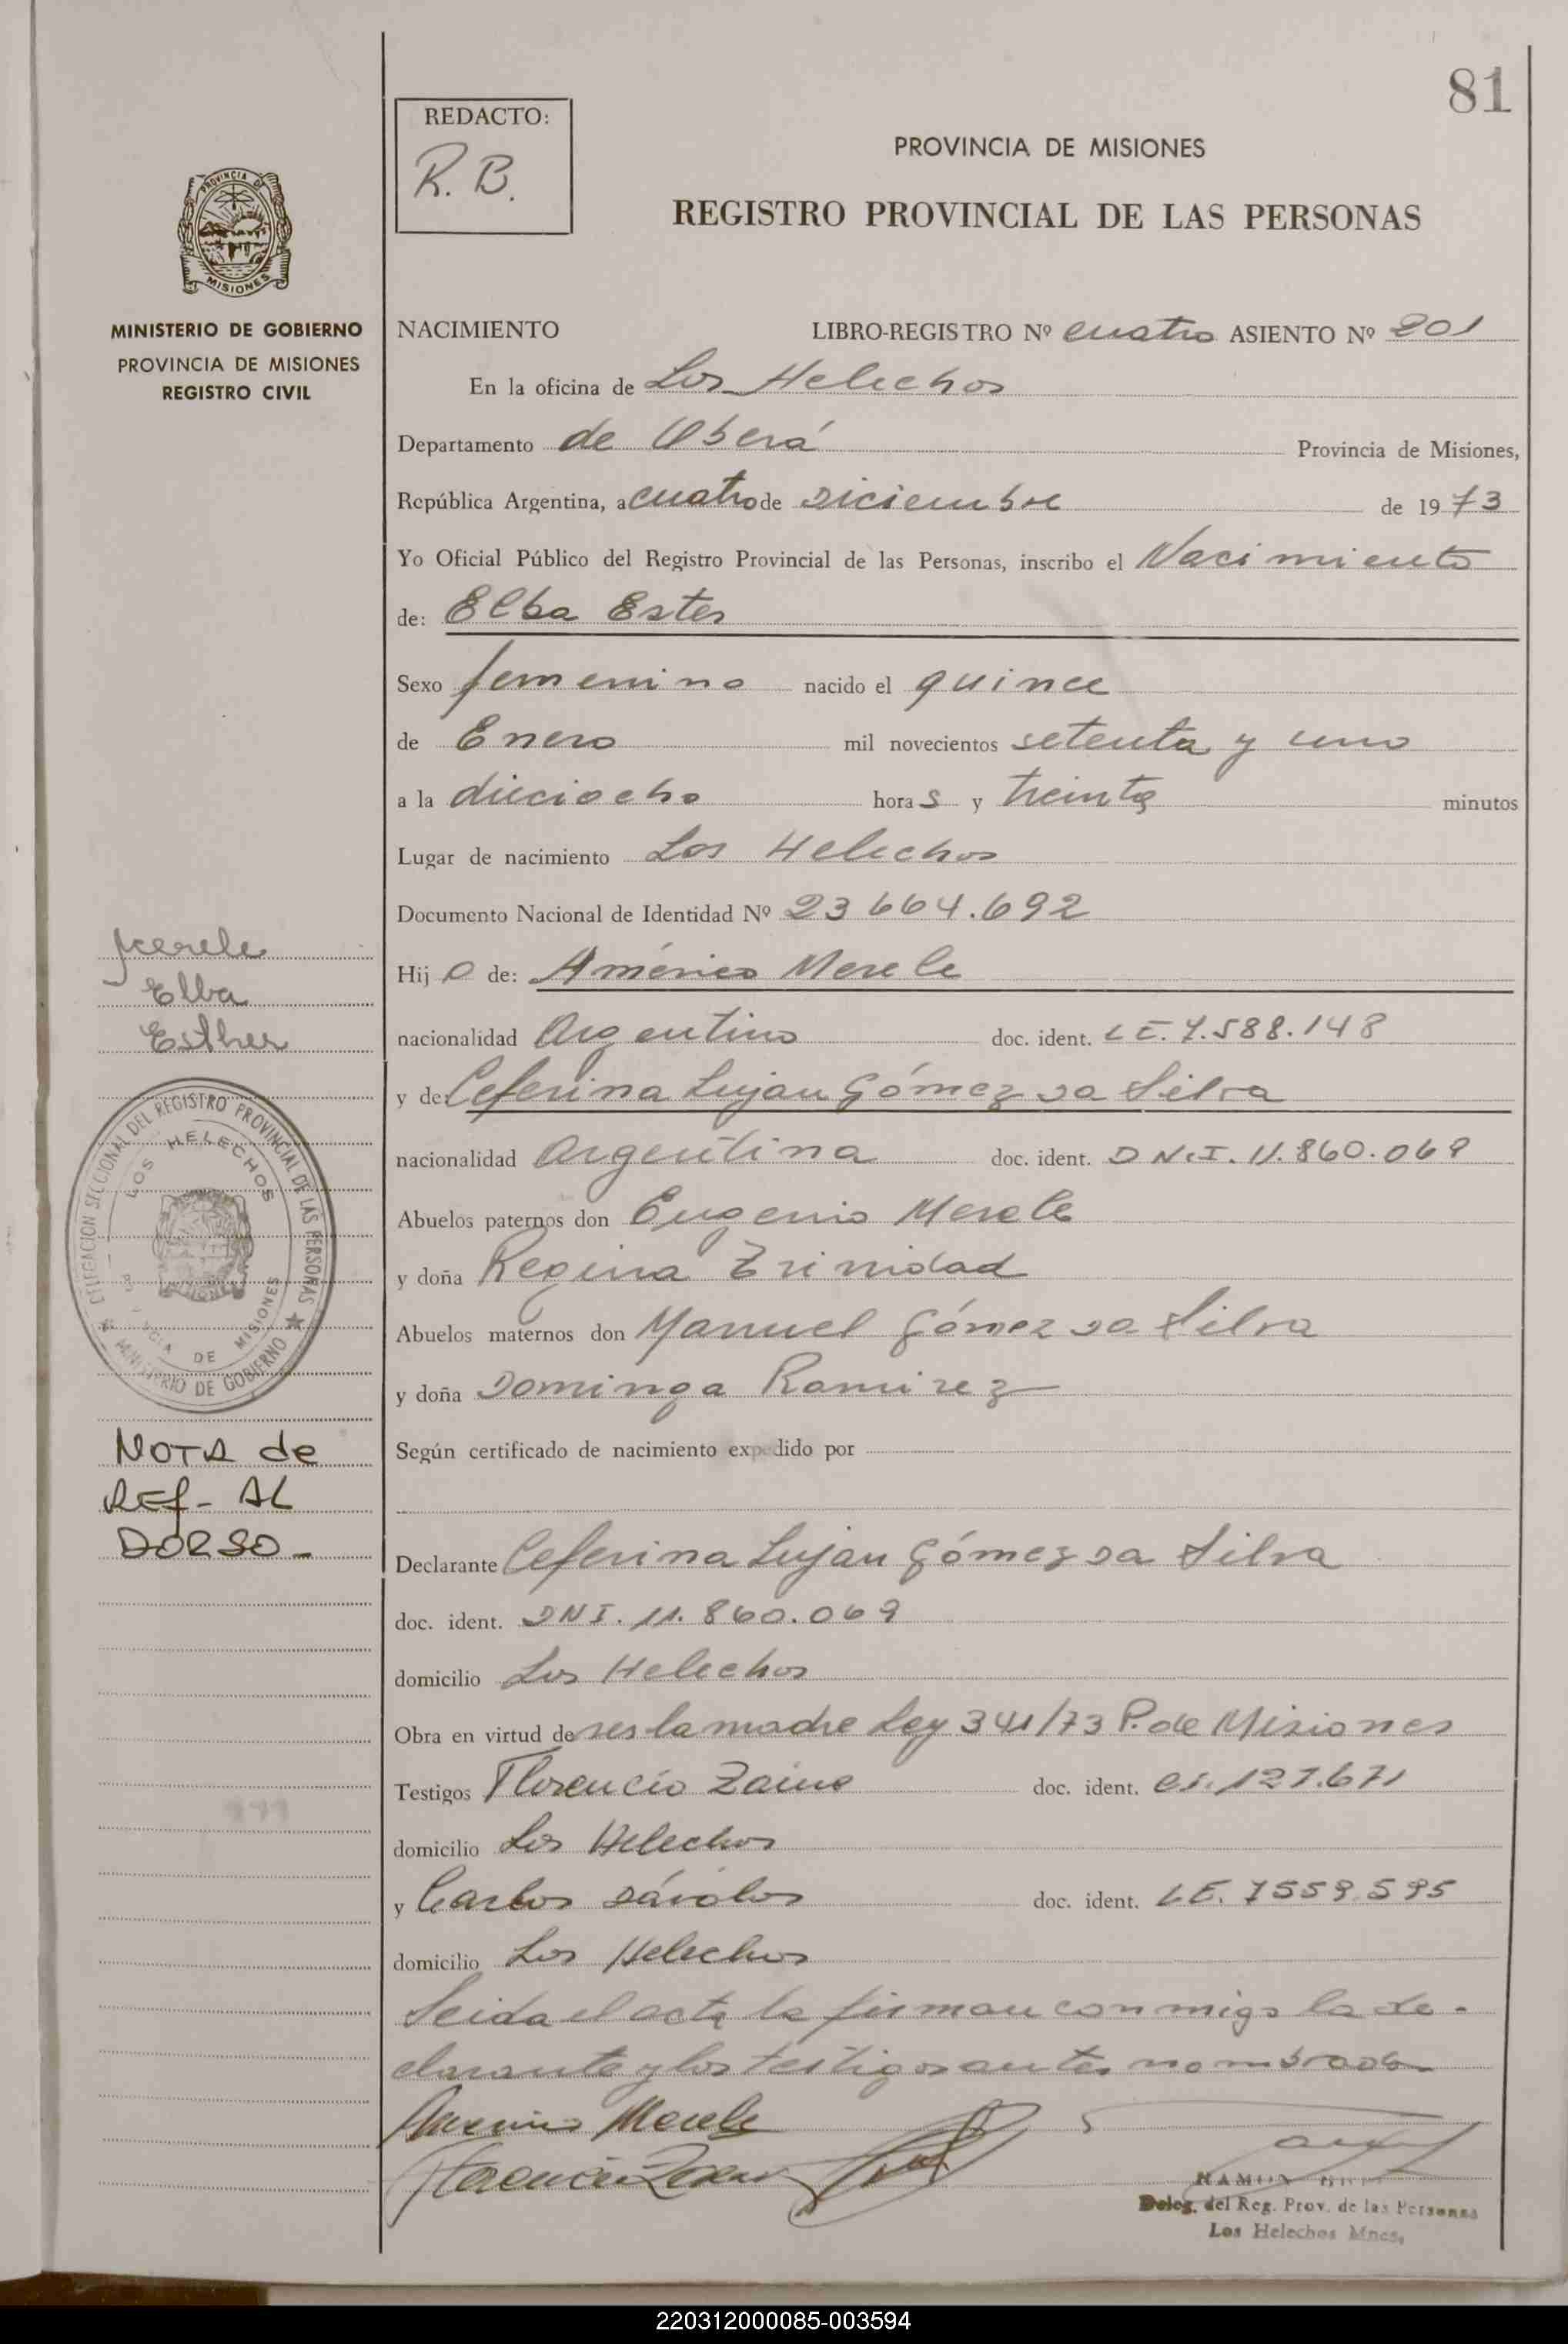 81
REDACTO:
R. B.
PROVINCIA DE MISIONES
REGISTRO PROVINCIAL DE LAS PERSONAS
PROVINCIA DE
MISIONES
MINISTERIO DE GOBIERNO
PROVINCIA DE MISIONES
REGISTRO CIVIL
NACIMIENTO LIBRO-REGISTRO Nº cuatro ASIENTO Nº 801
En la oficina de Los Helechos
Departamento de Oberá Provincia de Misiones,
República Argentina, a cuatro de diciembre de 1973
Yo Oficial Público del Registro Provincial de las Personas, inscribo el Nacimiento
de: Elba Ester
Sexo femenino nacido el quince
de Enero mil novecientos setenta y uno
a la dieciocho horas y treinta minutos
Lugar de nacimiento Los Helechos
Documento Nacional de Identidad Nº 23 664.692
Hija de: Américo Merele
nacionalidad Argentino doc. ident. LE. 7.588.148
y de: Ceferina Lujan Gómez da Silva
nacionalidad argentina doc. ident. DN.I. 11.860.069
Abuelos paternos don Eugenio Merele
y doña Regina Trinidad
Abuelos maternos don Manuel Gómez da Silva
y doña Dominga Ramirez
Según certificado de nacimiento expedido por
Declarante Ceferina Lujan Gómez da Silva
doc. ident. DNI. 11.860.069
domicilio Los Helechos
Obra en virtud de ser la madre Ley 341/73 P. de Misiones
Testigos Florencio Zaine doc. ident. 127.671
domicilio Los Helechos
y Carlos Dávalos doc. ident. LE. 7559.595
domicilio Los Helechos
Leida el acta la firman conmigo la de-
clarante y los testigos antes nombrados
Merele
RAMON
Deleg. del Reg. Prov. de las Personas
Los Helechos Mnes.
Merele
Elba
Esther
DELEGACION SECCIONAL DEL REGISTRO PROVINCIAL DE LAS PERSONAS
LOS HELECHOS
PROVINCIA DE MISIONES
MINISTERIO DE GOBIERNO
NOTA de
REf- AL
DORSO-
220312000085-003594